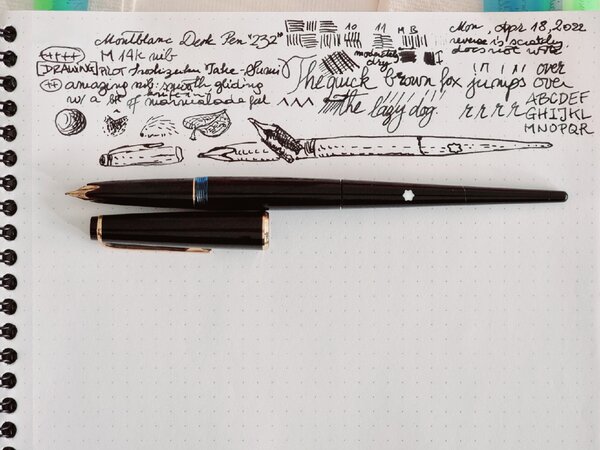 Montblanc Desk Pen "232"
10 11 M B
Mon, Apr 18, 2022
M 14k nib
moderately dry
reverse is scratchy
does not write
[DRAWING] PILOT Iroshizuku Take-Sumi
++ amazing nib: smooth gliding
w/ a bit of feel
The quick brown fox jumps over
the lazy dog.
over
ABCDEF
GHIJKL
MNOPQR